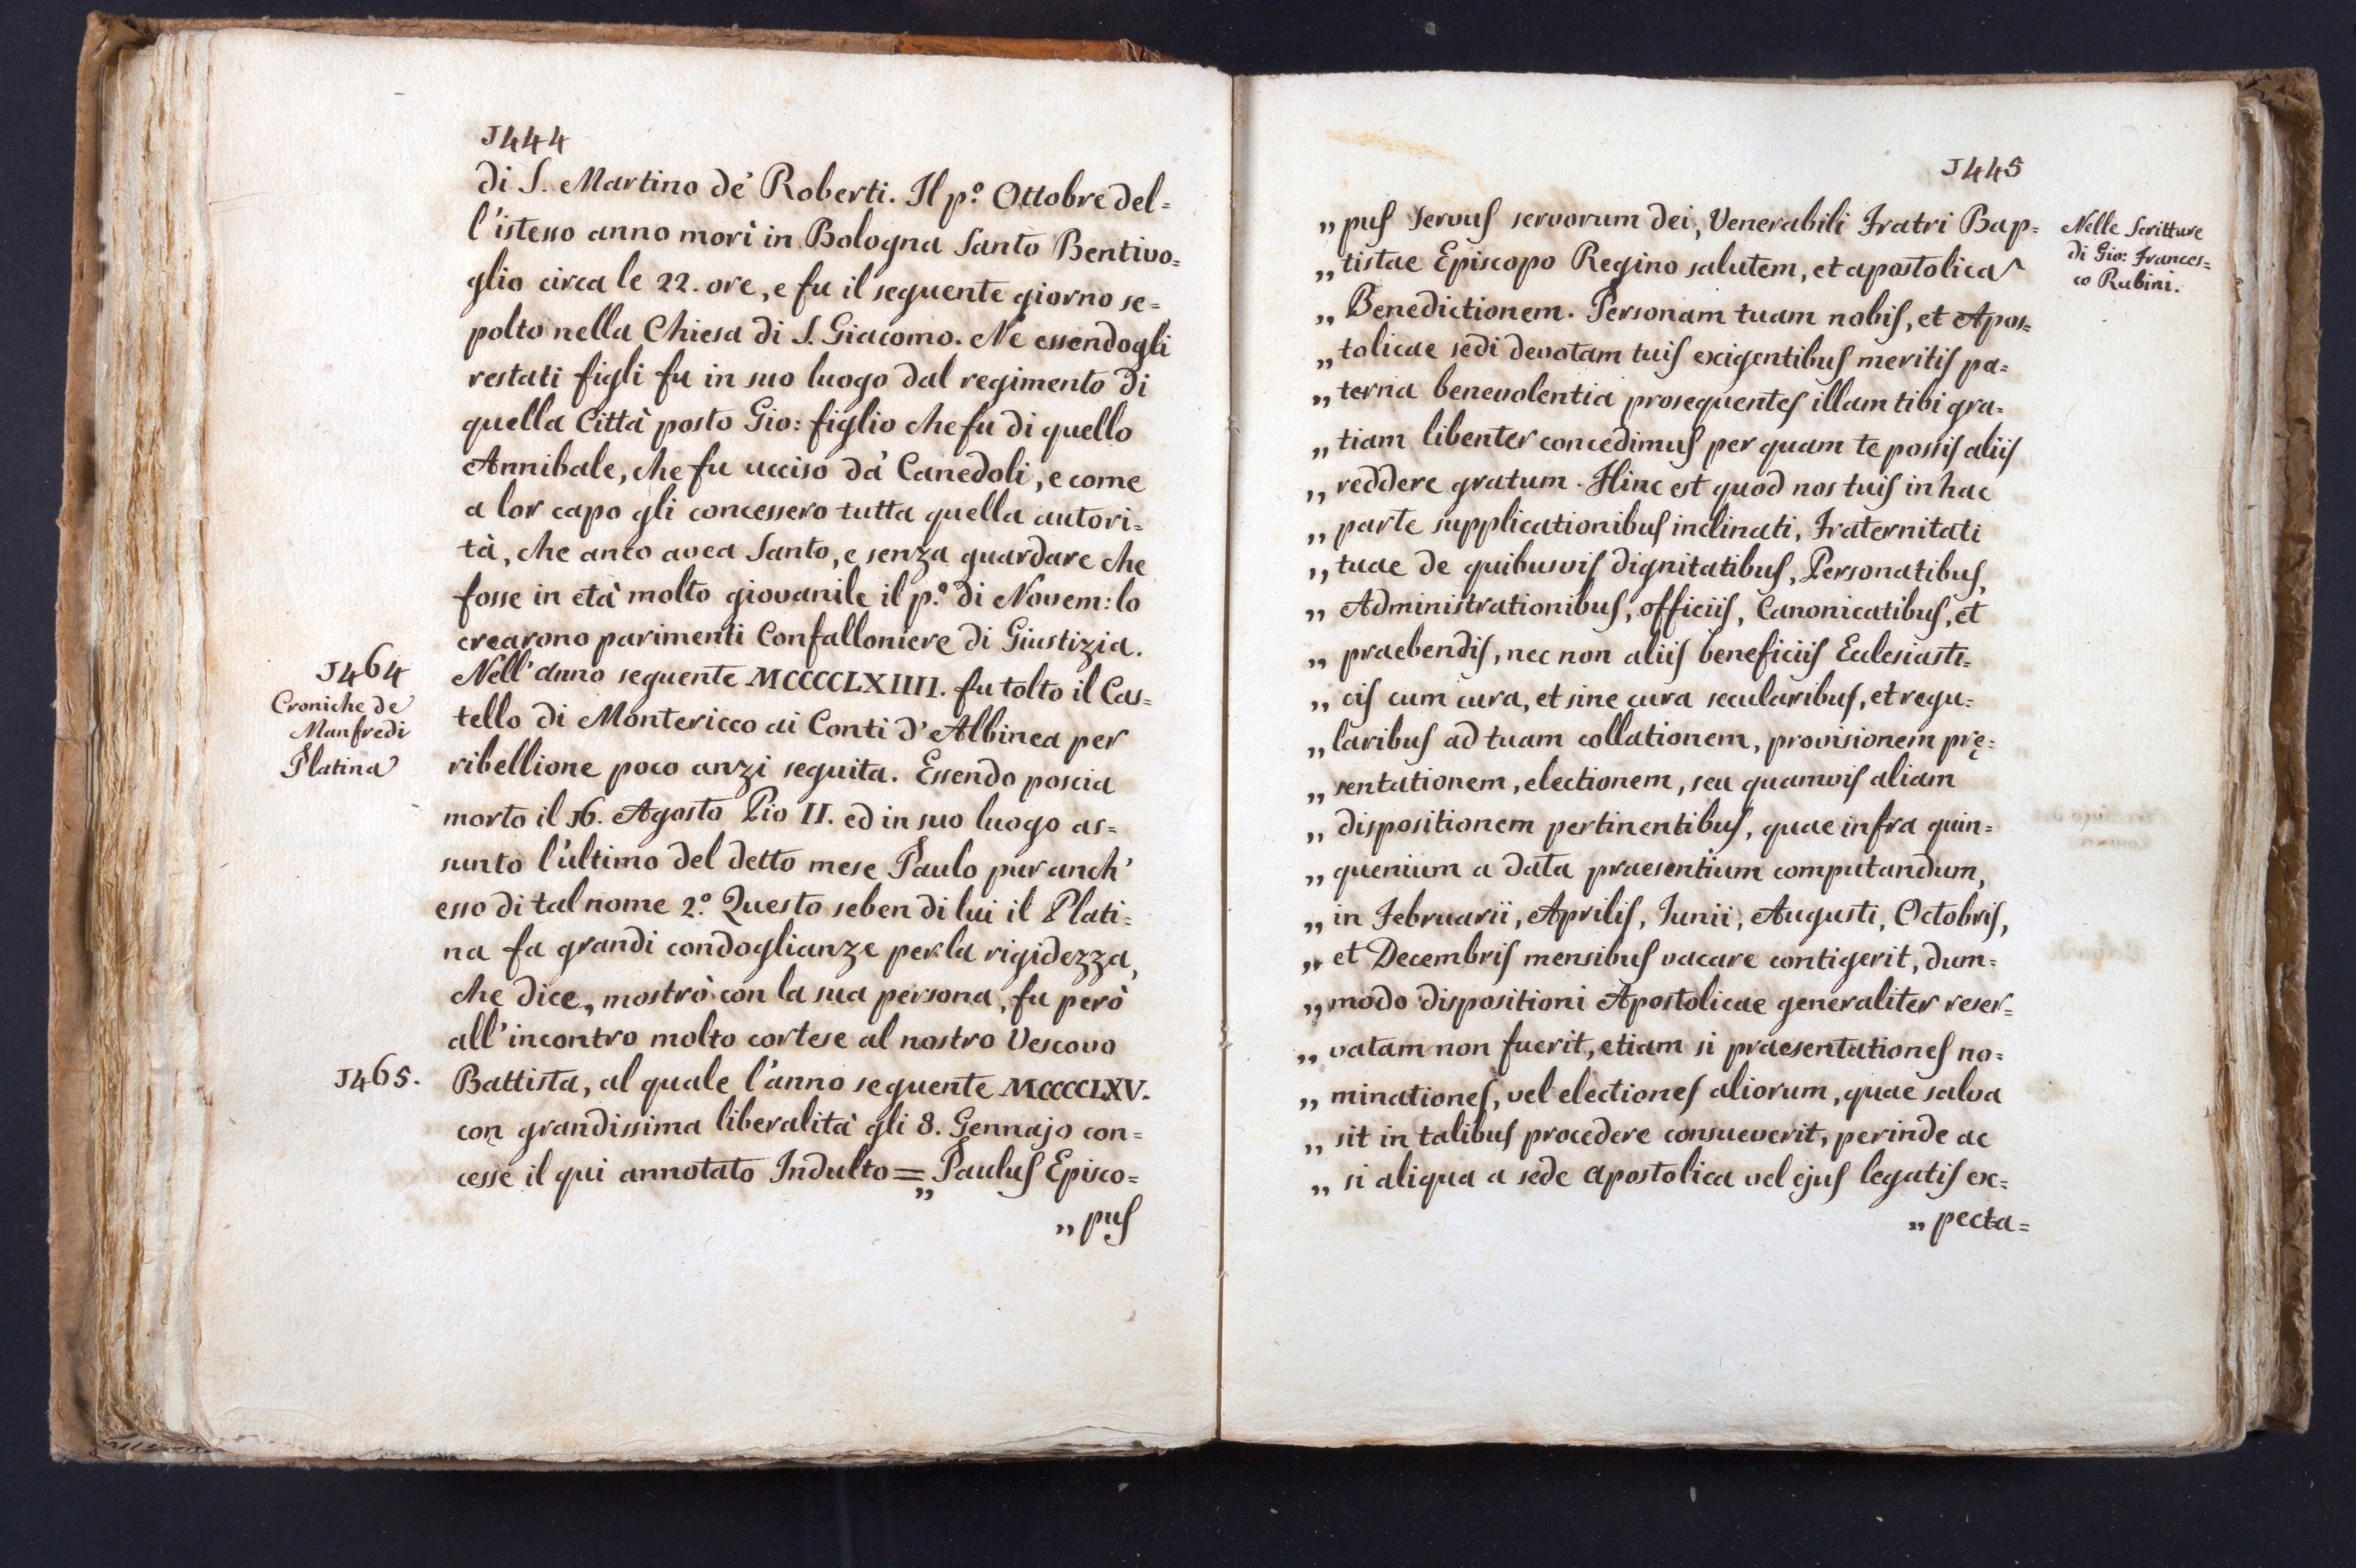 1444
di S. Martino de' Roberti. Il p.º Ottobre del=
l'istesso anno morì in Bologna Santo Bentivo=
glio circa le 22. ore, e fu il seguente giorno se=
polto nella Chiesa di S. Giacomo. Nè essendogli
restati figli fu in suo luogo dal regimento di
quella Città posto Gio: figlio che fu di quello
Annibale, che fu ucciso da' Canedoli, e come
a lor capo gli concessero tutta quella autori=
tà, che anco avea Santo, e senza guardare che
fosse in età molto giovanile il p.º di Novem: lo
crearono parimenti Confalloniere di Giustizia.
1464
Croniche de
Manfredi
Platina
Nell'anno seguente MCCCCLXIIII. fu tolto il Cas=
tello di Montericco ai Conti d'Albinea per
ribellione poco anzi seguita. Essendo poscia
morto il 16. Agosto Pio II. ed in suo luogo as=
sunto l'ultimo del detto mese Paulo pur anch'
esso di tal nome 2.º Questo seben di lui il Plati=
na fa grandi condoglianze per la rigidezza,
che dice, mostrò con la sua persona, fu però
all'incontro molto cortese al nostro Vescovo
1465.
Battista, al quale l'anno seguente MCCCCLXV.
con grandissima liberalità gli 8. Gennajo con=
cesse il qui annotato Indulto = „ Paulus Episco=
„ pus
1445
„ pus servus servorum dei, Venerabili Fratri Bap=
„ tistae Episcopo Regino salutem, et apostolica^
„ Benedictionem. Personam tuam nobis, et Apos=
„ tolicae sedi devotam tuis exigentibus meritis pa=
„ terna benevolentia prosequentes illam tibi gra=
„ tiam libenter concedimus per quam te possis aliis
„ reddere gratum. Hinc est quod nos tuis in hac
„ parte supplicationibus inclinati, Fraternitati
„ tuae de quibusvis dignitatibus, Personatibus,
„ Administrationibus, officiis, Canonicatibus, et
„ praebendis, nec non aliis beneficiis Eclesiasti=
„ cis cum cura, et sine cura secularibus, et regu=
„ laribus ad tuam collationem, provisionem prę=
„ sentationem, electionem, seu quamvis aliam
„ dispositionem pertinentibus, quae infra quin=
„ quenium a data praesentium computandum,
„ in Februarii, Aprilis, Iunii, Augusti, Octobris,
„ et Decembris mensibus vacare contigerit, dum=
„ modo dispositioni Apostolicae generaliter reser=
„ vatam non fuerit, etiam si praesentationes no=
„ minationes, vel electiones aliorum, quae salva
„ sit in talibus procedere consueverit, perinde ac
„ si aliqua a sede apostolica vel ejus legatis ex=
„ pecta=
Nelle Scritture
di Gio: Frances=
co Rubini.